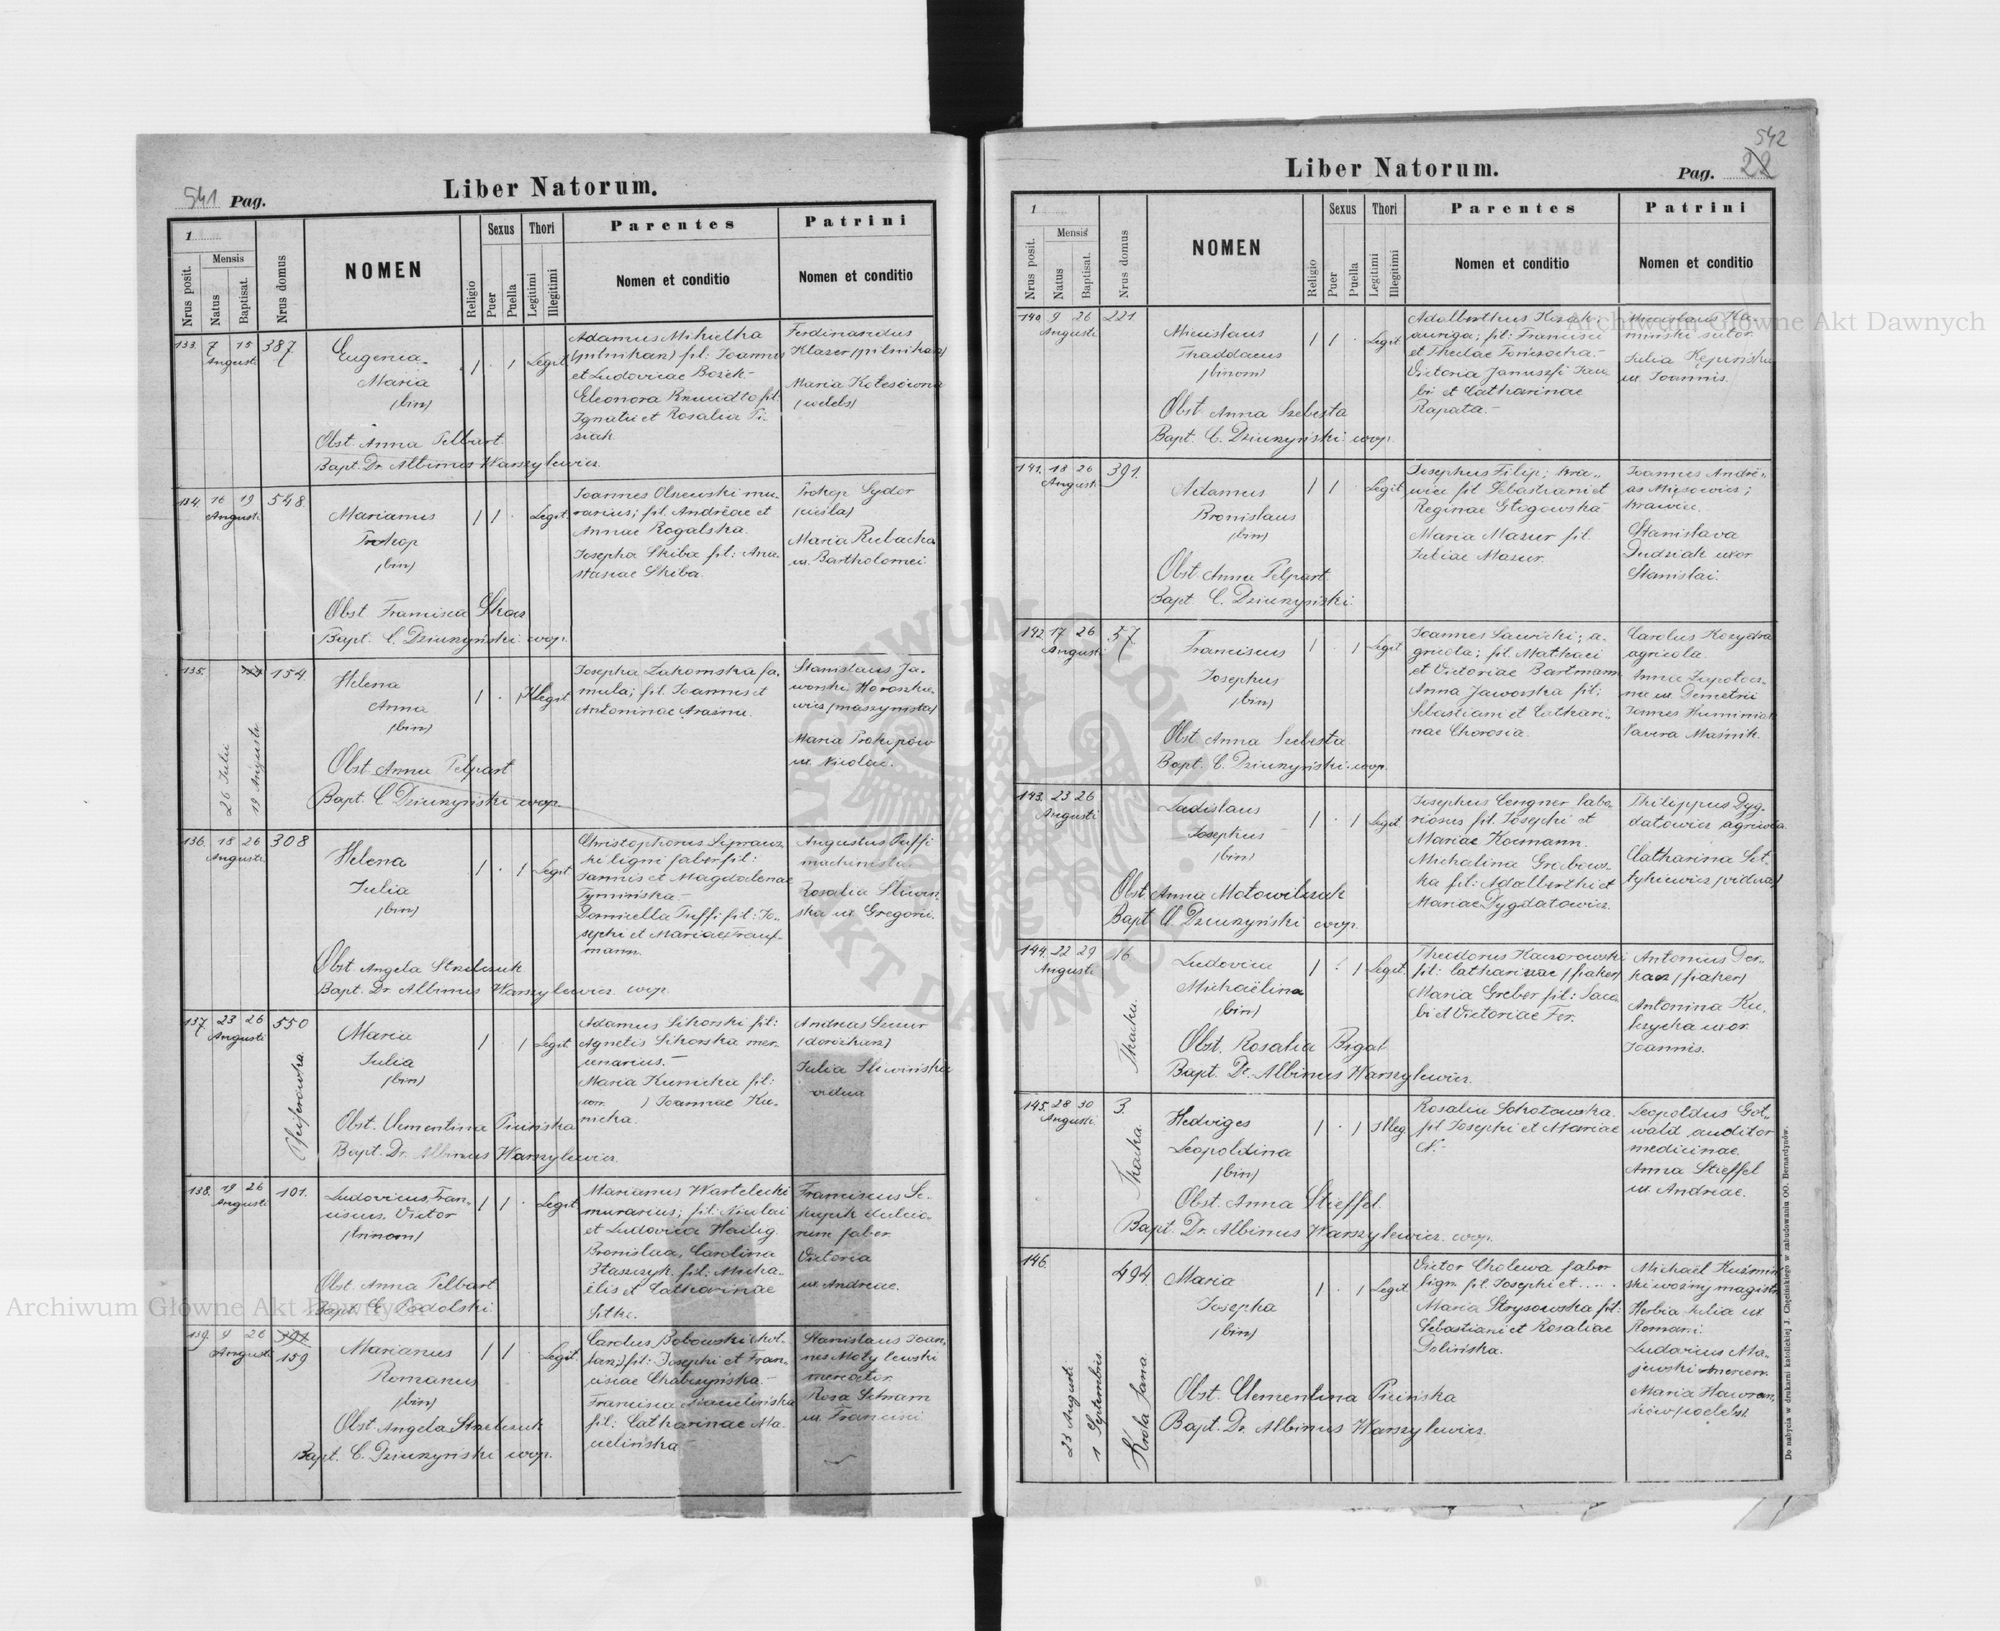 541 Pag.
Liber Natorum.
1
Nrus posit.
Mensis
Natus
Baptisat.
Nrus domus
NOMEN
Religio
Sexus
Puer
Puella
Thori
Legitimi
Illegitimi
Parentes
Nomen et conditio
Patrini
Nomen et conditio
133. 7 15 387
Augusti
Eugenia
Maria
(bin)
Obst. Anna Pelbart.
Bapt. Dr. Albinus Warszylewicz
1 1 Legit
Adamus
(pilnikarz) fil: Joannis
et Ludovicae Bożek.
Eleonora fil.
Ignatii et Rosalia
Ferdinandus
(pilnikarz)
Maria
134. 16 19 548
Augusti
Marianus
Prokop
(bin)
Obst. Francisca
Bapt. C. Dziurzyński coop.
1 1 Legit.
Joannes Olszewski mu-
rarius; fil. Andreae et
Annae Rogalska.
Josepha Skiba fil: Ana-
stasiae Skiba.
Prokop Sydor
(cieśla)
Maria Rubacha
ux. Bartholomei.
135. 154.
26 Julii
19 Augusti
Helena
Anna
(bin)
Obst. Anna Pelpart
Bapt. C. Dziurzyński coop.
1 1 Illegit
Josepha Zakomska fa-
mula; fil. Joannis et
Antoninae
Stanislaus Ja-
worski
(maszynista)
Maria Prokopów
ux. Nicolai.
136. 18 26 308
Augusti
Helena
Julia
(bin)
Obst. Angela Strelczuk
Bapt. Dr. Albinus Warszylewicz coop.
1 1 Legit
Christophorus
ligni faber fil:
Joannis et Magdalenae
Tymińska
Domicella Tuffi fil: Jo-
sephi et Mariae
mann.
Augustus Tuffi
machinista.
Rosalia
ska ux. Gregorii.
137. 23 26 550
Augusti
Maria
Julia
(bin)
Obst. Clementina Piińska
Bapt. Dr. Albinus Warszylewicz.
1 1 Legit.
Adamus Sikorski fil:
Agnetis Sikorska mer-
cenarius.
Maria Kunicka fil:
Joannae Ku-
nicka.
Andreas
(dorożkarz)
Julia Śliwińska
vidua
138. 19 26 101.
Augusti
Ludovicus, Fran-
ciscus, Victor
(trinom)
Obst. Anna Pelbart
Bapt. E. Podolski
1 1 Legit.
Marianus Wartelecki
murarius; fil. Nicolai
et Ludovica Hailig.
Bronislaa, Carolina
Błaszczyk fil: Micha-
ëlis et Catharinae
Franciscus
faber
Victoria
ux. Andreae.
139. 9 26
Augusti 159
Marianus
Romanus
(bin)
Obst. Angela Strelczuk
Bapt. C. Dziurzyński coop.
1 1 Legit.
Carolus Bobowski
fil: Josephi et Fran-
cisciae Chabczyńska.
Francisca Macielińska
fil: Catharinae Ma-
cielińska
Stanislaus Joan-
nes
mercator
Rosa Schram
ux. Francisci
542
Liber Natorum.
Pag. 22
1
Nrus posit.
Mensis
Natus
Baptisat.
Nrus domus
NOMEN
Religio
Sexus
Puer
Puella
Thori
Legitimi
Illegitimi
Parentes
Nomen et conditio
Patrini
Nomen et conditio
140. 9 26 221
Augusti
Micislaus
Thaddaeus
(binom)
Obst. Anna Szebesta
Bapt. C. Dziurzyński coop.
1 1 Legit
Adalberthus Kozak;
auriga; fil: Francisci
et Theclae
Victoria Januszfi Jaco-
bi et Catharinae
Rapata.
Micislaus Ka-
miński sutor.
Julia
ux. Joannis.
141. 18 26 391.
Augusti
Adamus
Bronislaus
(bin)
Obst. Anna Pelpart.
Bapt. C. Dziurzyński.
1 1 Legit
Josephus Filip; kra-
wiec fil. Sebastiani et
Reginae Głogowska
Maria Mazur fil.
Juliae Mazur.
Joannes Andre-
as
krawiec.
Stanislava
Dudziak uxor
Stanislai.
142. 17 26 57.
Augusti
Franciscus
Josephus
(bin)
Obst. Anna Szebesta
Bapt. C. Dziurzyński coop.
1 1 Legit
Joannes Sawicki; a-
gricola; fil. Mathaei
et Victoriae Bartmann
Anna Jaworska fil:
Sebastiani et Cathari-
nae Chorosia.
Carolus Kozydra
agricola.
Anna
ux. Demetrii
143. 23 26
Augusti
Ladislaus
Josephus
(bin)
Obst. Anna Motowilczuk
Bapt. C. Dziurzyński coop.
1 1 Legit
Josephus Cengner labo-
riosus fil. Josephi et
Mariae Kocmann.
Michalina Grabow-
ska fil: Adalberthi et
Mariae Dygdałowicz.
Philippus Dyg-
dałowicz agricola
Catharina
(vidua)
144. 22 29 216
Augusti
Thacka.
Ludovica
Michaëlina
(bin)
Obst. Rosalia Bigal
Bapt. Dr. Albinus Warszylewicz.
1 1 Legit.
Theodorus Kaczorowski
fil: Catharinae (fiaker)
Maria Greber fil: Jaco-
bi et Victoriae Fer.
Antonius
(fiaker)
Antonina
uxor
Joannis.
145. 28 30 3.
Augusti.
Thacka.
Hedviges
Leopoldina
(bin)
Obst. Anna Stieffel.
Bapt. Dr. Albinus Warszylewicz. coop.
1 1 Illeg
Rosalia Sokołowska
fil Josephi et Mariae
N.
Leopoldus Got-
wald auditor
medicinae.
Anna Stieffel
ux. Andreae.
146. 494.
23 Augusti
1 Septembris.
Króla Jana
Maria
Josepha
(bin)
Obst. Clementina Piińska
Bapt. Dr. Albinus Warszylewicz.
1 1 Legit
Victor Cholewa faber
lign. fil. Josephi et . . . .
Maria Strysowska fil:
Sebastiani et Rosaliae
Dolińska.
Michaël Kuźmiń-
ski woźny magistr.
Herbia Julia ux
Romani.
Ludovicus Ma-
jewski
Maria
Do nabycia w drukarni katolickiej J. Chęcińskiego w zabudowaniu OO. Bernardynów.
Archiwum Główne Akt Dawnych
Archiwum Główne Akt Dawnych
ARCHIWUM GŁÓWNE AKT DAWNYCH